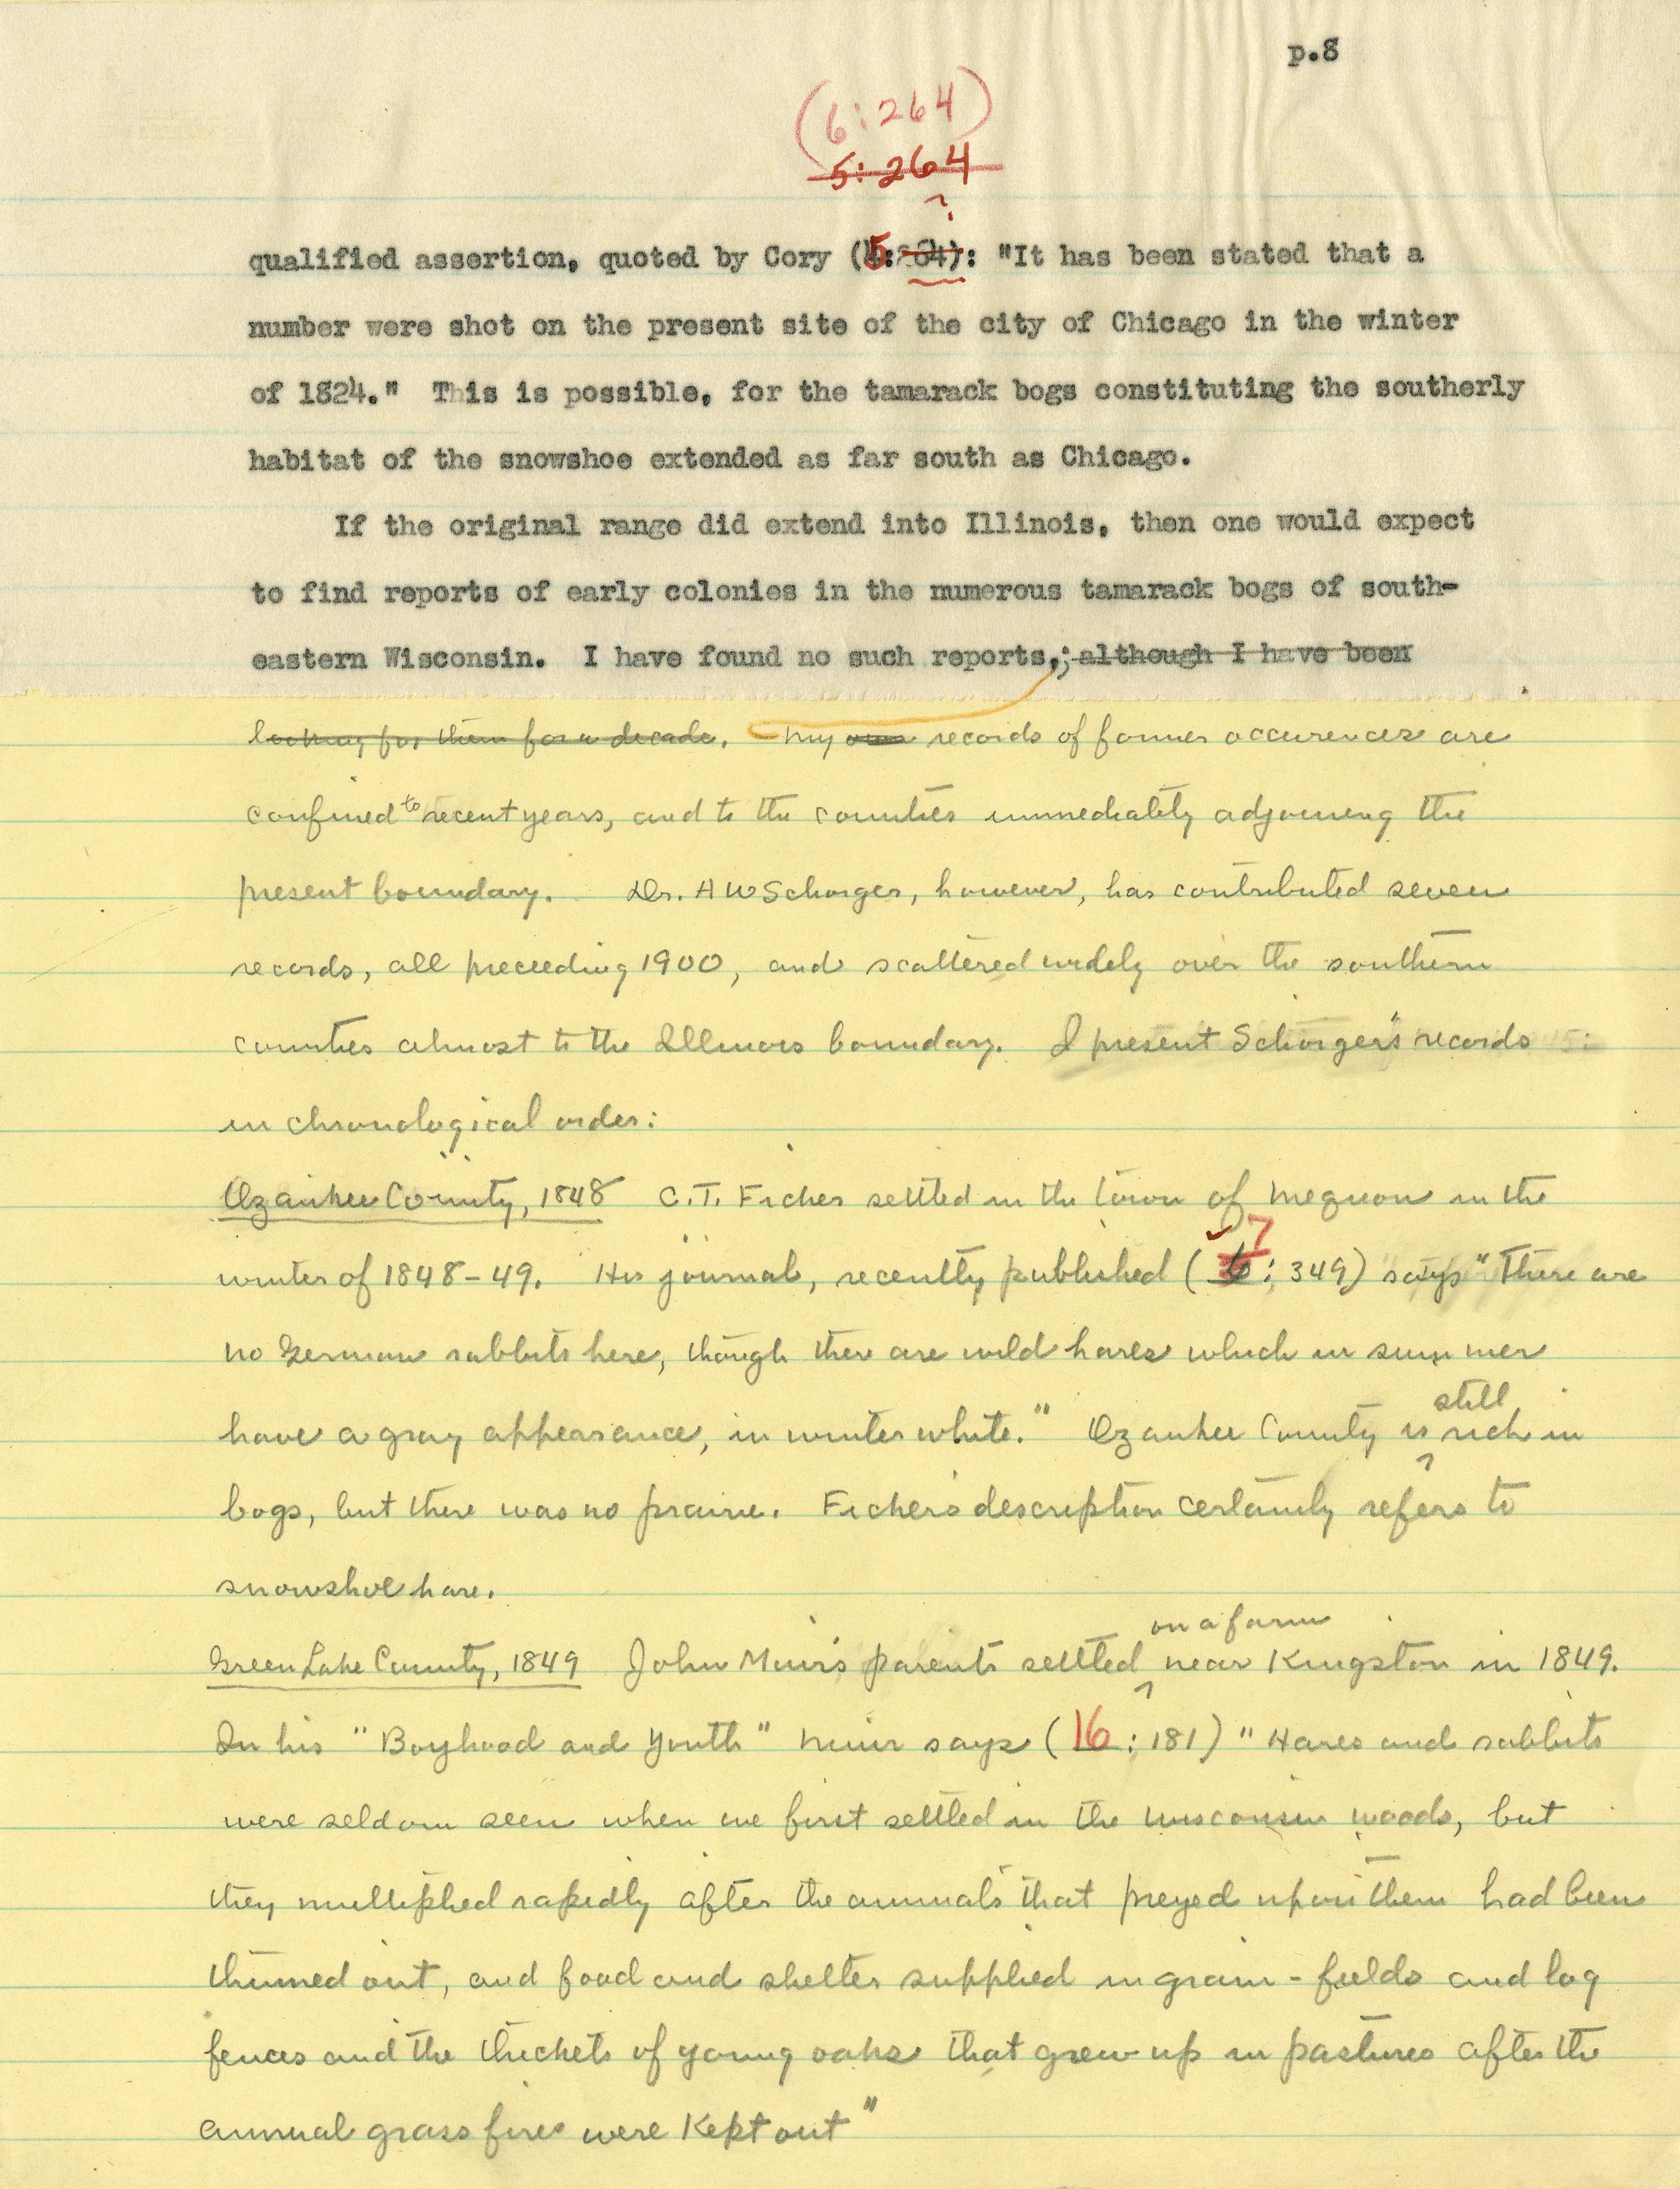 p.8
(6:264)
5:264
qualified assertion, quoted by Cory (5:264): "It has been stated that a
number were shot on the present site of the city of Chicago in the winter
of 1824." This is possible, for the tamarack bogs constituting the southerly
habitat of the snowshoe extended as far south as Chicago.
If the original range did extend into Illinois, then one would expect
to find reports of early colonies in the numerous tamarack bogs of south-
eastern Wisconsin. I have found no such reports,; although I have been
looking for them for a decade. My own records of former occurences are
confined to recent years, and to the counties immediately adjoining the
present boundary. Dr. A W Schorger, however, has contributed seven
records, all preceeding 1900, and scattered widely over the southern
counties almost to the Illinois boundary. I present Schorger's records
in chronological order:
Ozaukee County, 1848 C.T. Ficker settled in the town of Mequon in the
winter of 1848-49. His journal, recently published (7: 349) says "There are
no German rabbits here, though there are wild hares which in summer
have a gray appearance, in winter white." Ozaukee County is still rich in
bogs, but there was no prairie. Ficker's description certainly refers to
snowshoe hare.
Green Lake County, 1849 John Muir's parents settled on a farm near Kingston in 1849.
In his "Boyhood and Youth" Muir says (16: 181) "Hares and rabbits
were seldom seen when we first settled in the Wisconsin woods, but
they multiplied rapidly after the animals that preyed upon them had been
thinned out, and food and shelter supplied in grain-fields and log
fences and the thickets of young oaks that grew up in pastures after the
annual grass fires were kept out"